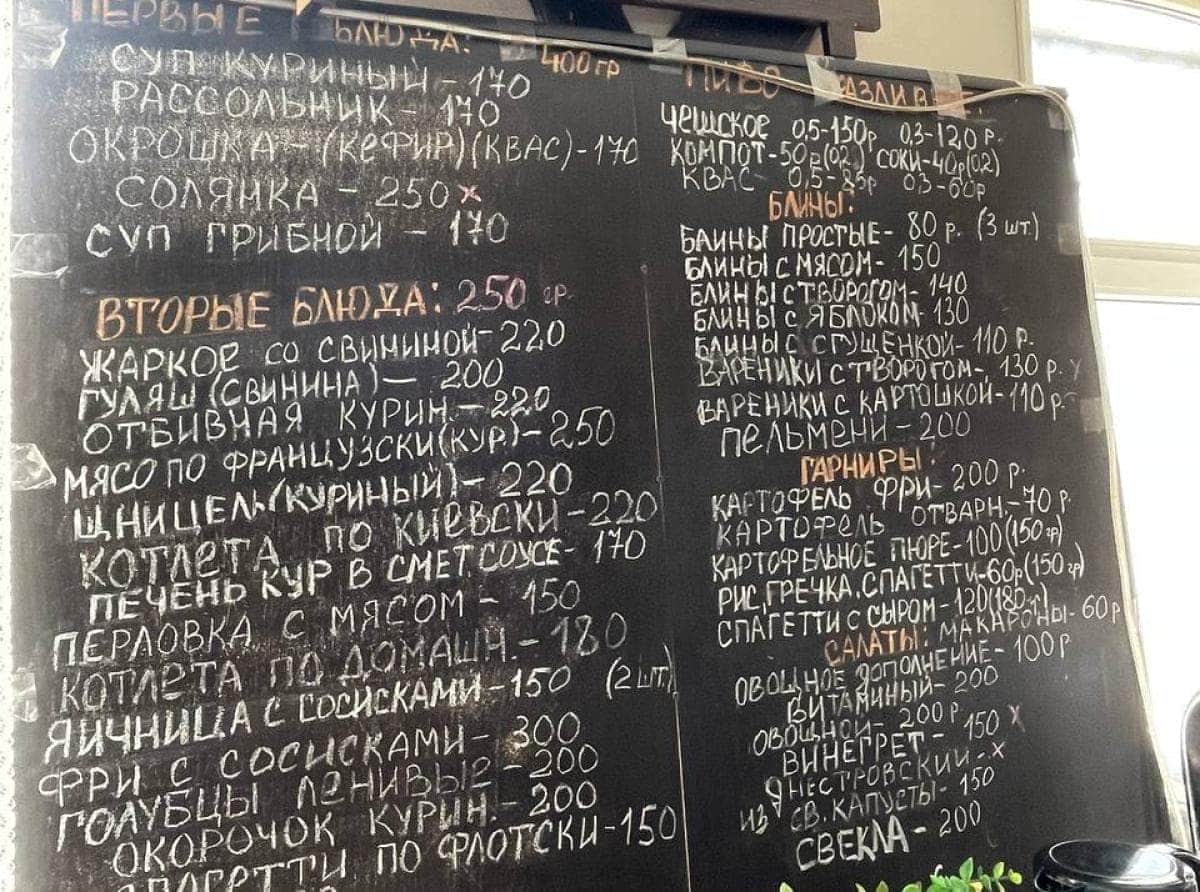 ПЕРВЫЕ БЛЮДА: 400 гр
СУП КУРИНЫЙ - 170
РАССОЛЬНИК - 170
ОКРОШКА - (КЕФИР) (КВАС) - 170
СОЛЯНКА - 250 х
СУП ГРИБНОЙ - 170
ВТОРЫЕ БЛЮДА: 250 гр.
ЖАРКОЕ СО СВИНИНОЙ - 220
ГУЛЯШ (СВИНИНА) - 200
ОТБИВНАЯ КУРИН. - 220
МЯСО ПО ФРАНЦУЗСКИ (КУР) - 250
ЩНИЦЕЛЬ (КУРИНЫЙ) - 220
КОТЛЕТА ПО КИЕВСКИ - 220
ПЕЧЕНЬ КУР В СМЕТ СОУСЕ - 170
ПЕРЛОВКА С МЯСОМ - 150
КОТЛЕТА ПО ДОМАШН. - 180
ЯИЧНИЦА С СОСИСКАМИ - 150 (2 ШТ)
ФРИ С СОСИСКАМИ - 300
ГОЛУБЦЫ ЛЕНИВЫЕ - 200
ОКОРОЧОК КУРИН. - 200
ПО ФЛОТСКИ - 150
ПИВО
ЧЕШСКОЕ 0,5 - 150 р 0,3 - 120 р.
КОМПОТ - 50 р (0,2) СОКИ - 40 р (0,2)
КВАС - 0,5 - 85р 0,3 - 60р
БЛИНЫ:
БЛИНЫ ПРОСТЫЕ - 80 р. (3 шт.)
БЛИНЫ С МЯСОМ - 150
БЛИНЫ С ТВОРОГОМ - 140
БЛИНЫ С ЯБЛОКОМ - 130
БЛИНЫ С СГУЩЕНКОЙ - 110 р.
ВАРЕНИКИ С ТВОРОГОМ - 130 р.
ВАРЕНИКИ С КАРТОШКОЙ - 110 р.
ПЕЛЬМЕНИ - 200
ГАРНИРЫ:
КАРТОФЕЛЬ ФРИ - 200 р.
КАРТОФЕЛЬ ОТВАРН. - 70 р.
КАРТОФЕЛЬНОЕ ПЮРЕ - 100 (150 гр)
РИС, ГРЕЧКА, СПАГЕТТИ - 60 р (150 гр)
СПАГЕТТИ С СЫРОМ - 120 (180 г)
САЛАТЫ: МАКАРОНЫ - 60 р
ОВОЩНОЕ ДОПОЛНЕНИЕ - 100 р
ВИТАМИННЫЙ - 200
ОВОЩНОЙ - 200 р
ВИНЕГРЕТ - 150 х
ДНЕСТРОВСКИЙ - х
ИЗ СВ. КАПУСТЫ - 150
СВЕКЛА - 200